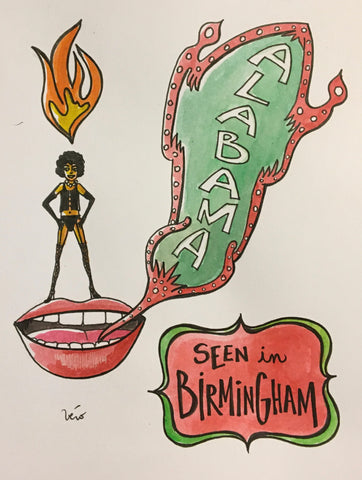 ALABAMA
SEEN in
BiRMiNGHAM